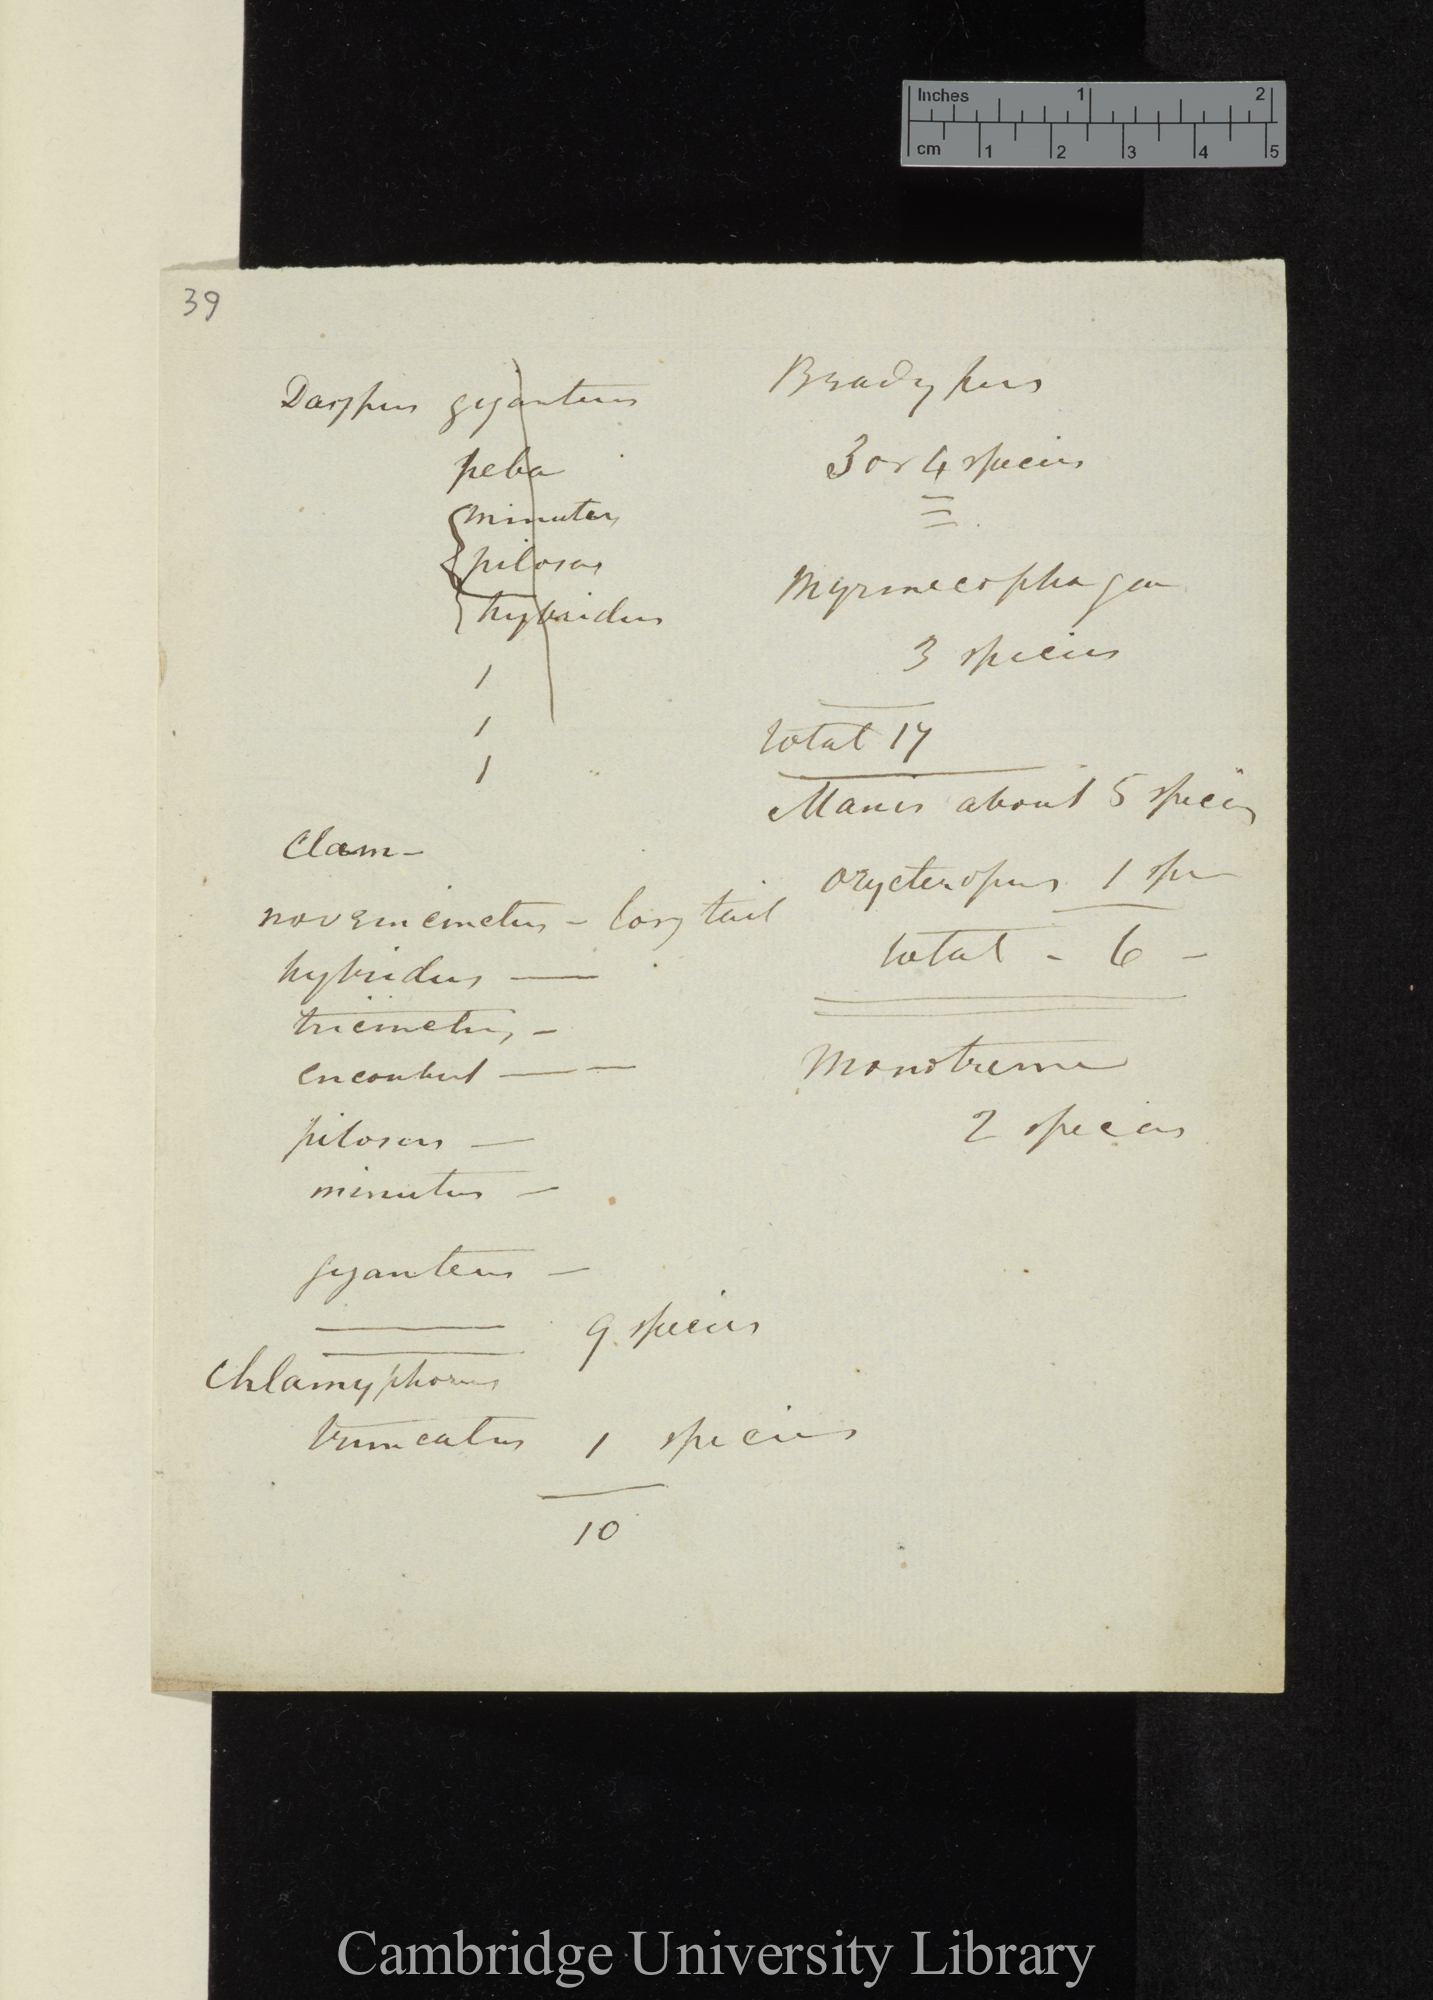 Inches 1 2
cm 1 2 3 4 5
39
Dasypus giganteus
peba
minutus
pilosus
hybridus
1
1
1
Clam –
novemcinctus – long tail
hybridus —
tricinctus, –
encoubert — —
pilosus —
minutus –
giganteus –
9 species
Chlamyphorus
truncatus 1 species
10
Bradypus
3 or 4 species
Myrmecophaga
3 species
total 17
Manis about 5 species
Orycteropus 1 spe
total - 6 –
Monotreme
2 species
Cambridge University Library